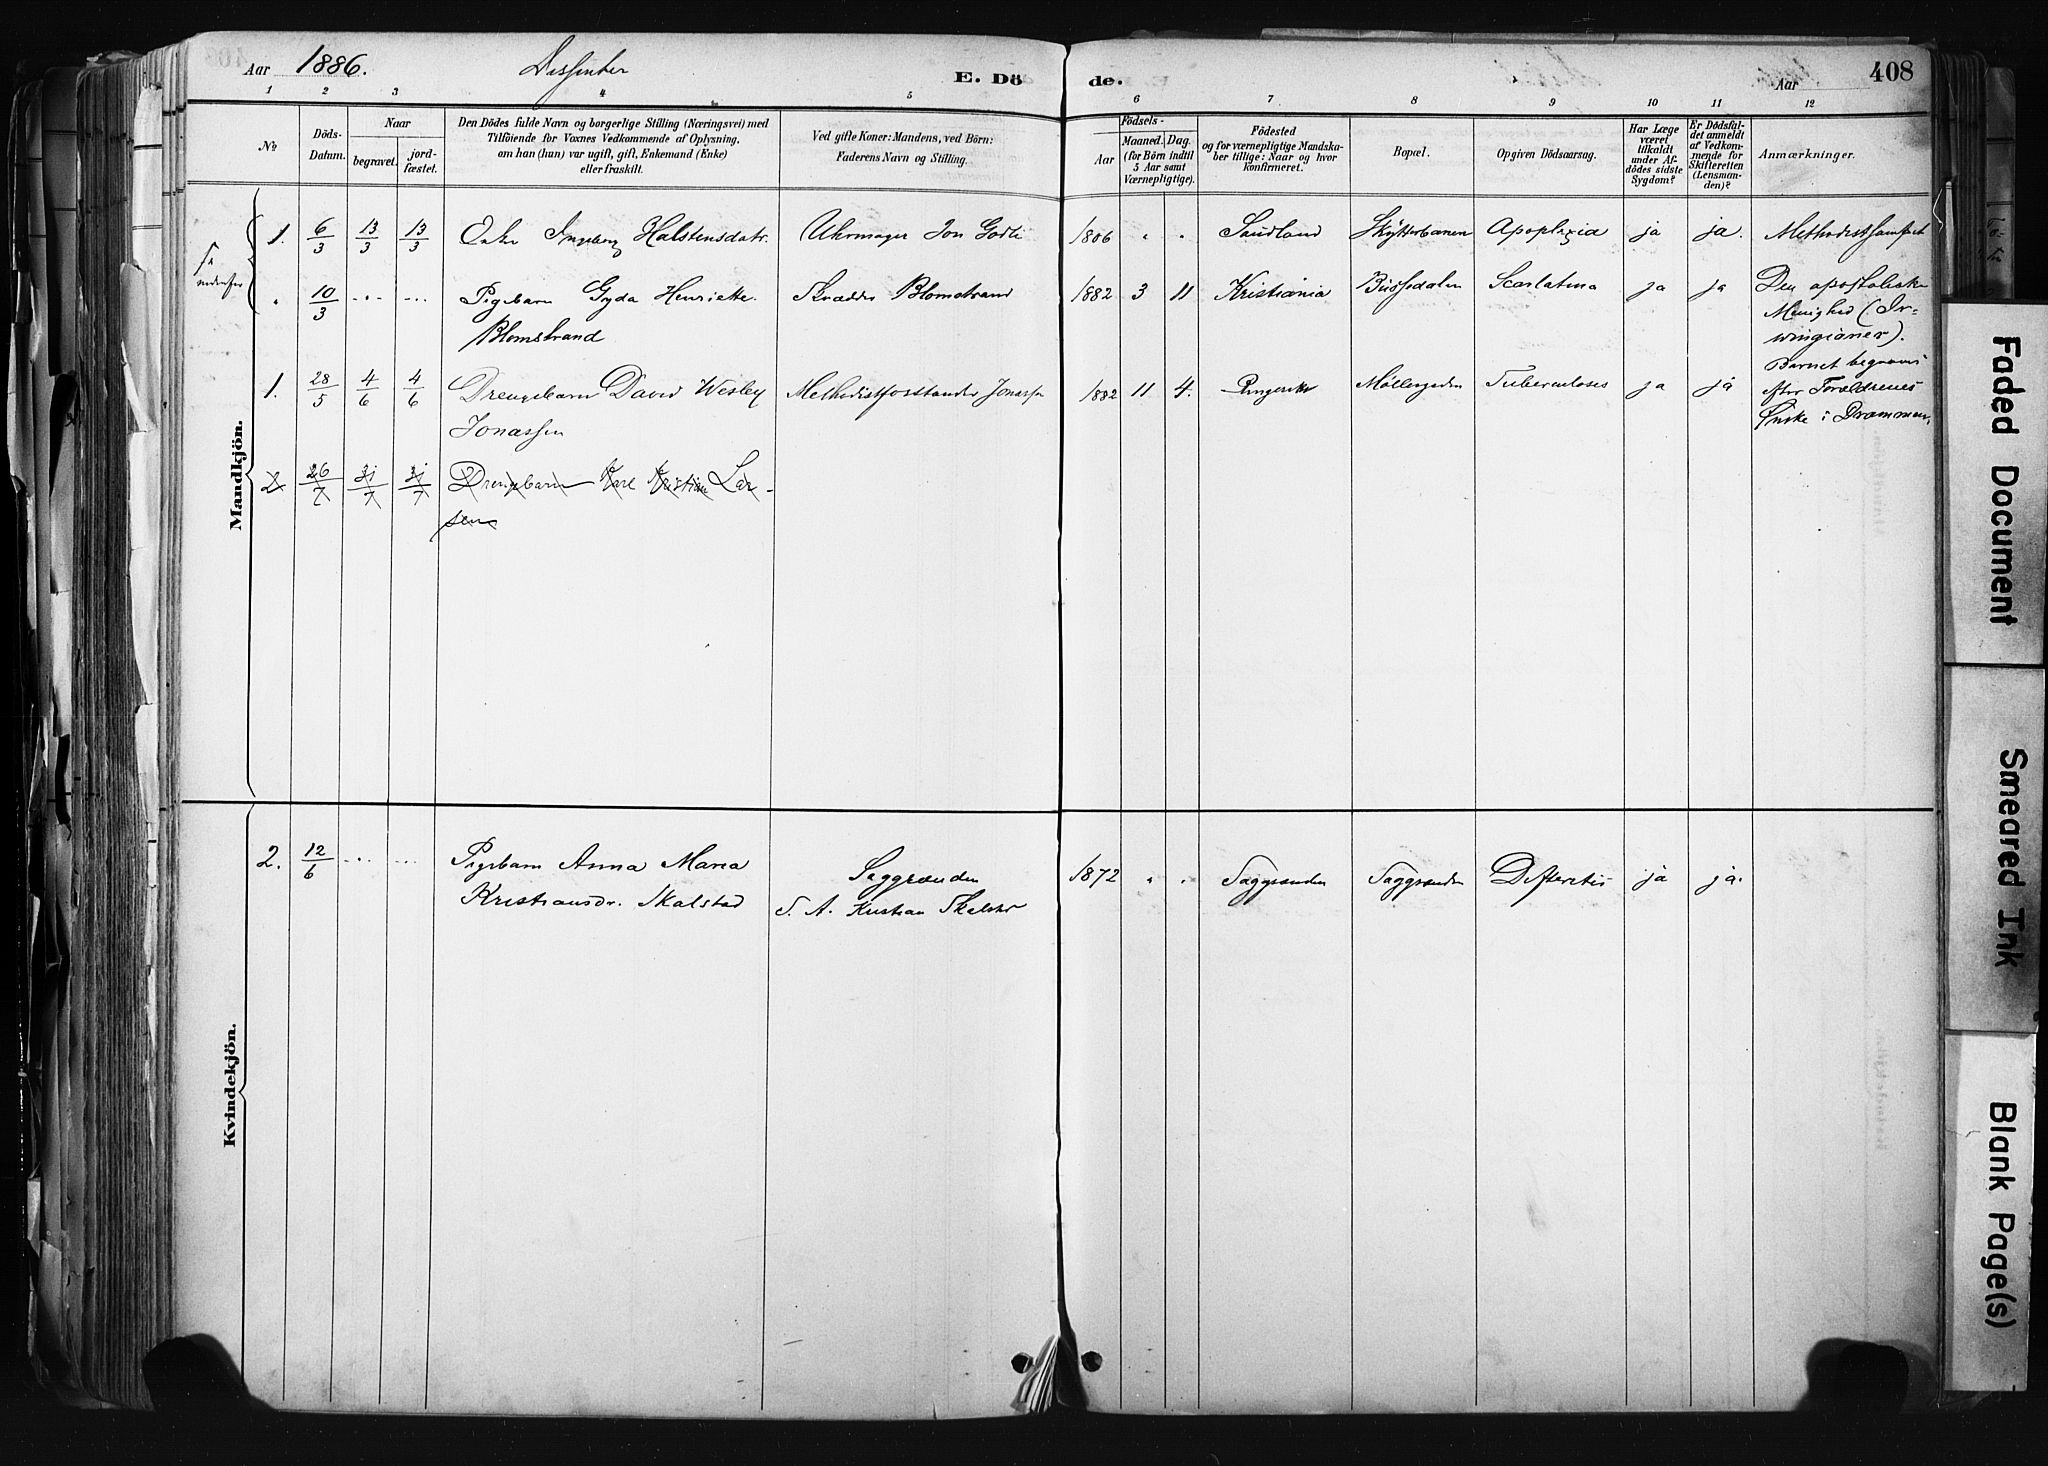 Aar 1886. Dissenter E. Dö de. Aar 408
1 2 3 4 5 6 7 8 9 10 11 12
No
Döds-Datum.
Naar
begravet.
jord-fæstet.
Den Dödes fulde Navn og borgerlige Stilling (Næringsvei) med
Tilföiende for Voxnes Vedkommende af Oplysning,
om han (hun) var ugift, gift, Enkemand (Enke)
eller fraskilt.
Ved gifte Koner: Mandens, ved Börn:
Faderens Navn og Stilling.
Födsels-
Aar
Maaned. Dag.
(for Börn indtil
5 Aar samt
Værnepligtige).
Födested
og for værnepligtige Mandska-
ber tillige: Naar og hvor
konfirmeret.
Bopæl.
Opgiven Dödsaarsag.
Har Læge
været
tilkaldt
under Af-
dödes sidste
Sygdom?
Er Dödsfal-
det anmeldt
af Vedkom-
mende for
Skifteretten
(Lensman-
den)?
Anmærkninger.
Mandkjön.
1. 6/3 13/3 13/3 Enke Ingeborg Halstensdatr. Uhrmager Jon Godli 1806 " " Sandland Skytterbanen Apoplexia ja ja. Methodistsamfut
" 10/3 ... ... Pigebarn Gyda Henriette Skrædder Blomstrand 1882 3 11 Kristiania Bussedalen Scarlatina ja ja Den apostoliske
Blomstrand
Menighed (Ir-
wingianer).
Barnet begraves
1. 28/5 4/6 4/6 Drengebarn David Wesley Methodistforstander Jonassen 1882 11 4. Ringerike Möllergaden Tuberculoses ja ja efter Forældrenes
Jonassen
Ønske i Drammen.
2 26/7 31/7 31/7 Drengebarn Karl Kristian Lar-
sen
Kvindekjön.
2. 12/6 ... ... Pigebarn Anna Maria Saggrenden 1872 " " Saggrenden Saggrenden Difteritis ja ja.
Kristiansdr. Skalstad S. A. Kristian Skalstad
Faded Document
Smeared Ink
Blank Page(s)